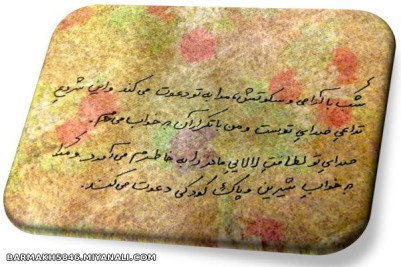 شب با آرامی و سکوتش، مرا به تو دعوت می‌کند و این شروع
تداعی صدای توست و من با تکرار آن به خواب می‌روم.
صدای تو لطافتِ لالاییِ مادر را به خاطرم می‌آورد و مرا
به خوابِ شیرین و پاک کودکی دعوت می‌کند.
BARMAKH5846.MIYANALI.COM